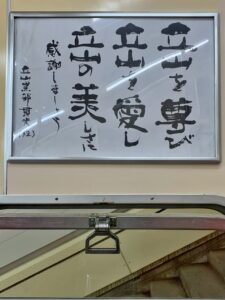 立山を尊び
立山を愛し
立山の美しさに
感謝しましょう
立山黒部貫光(株)